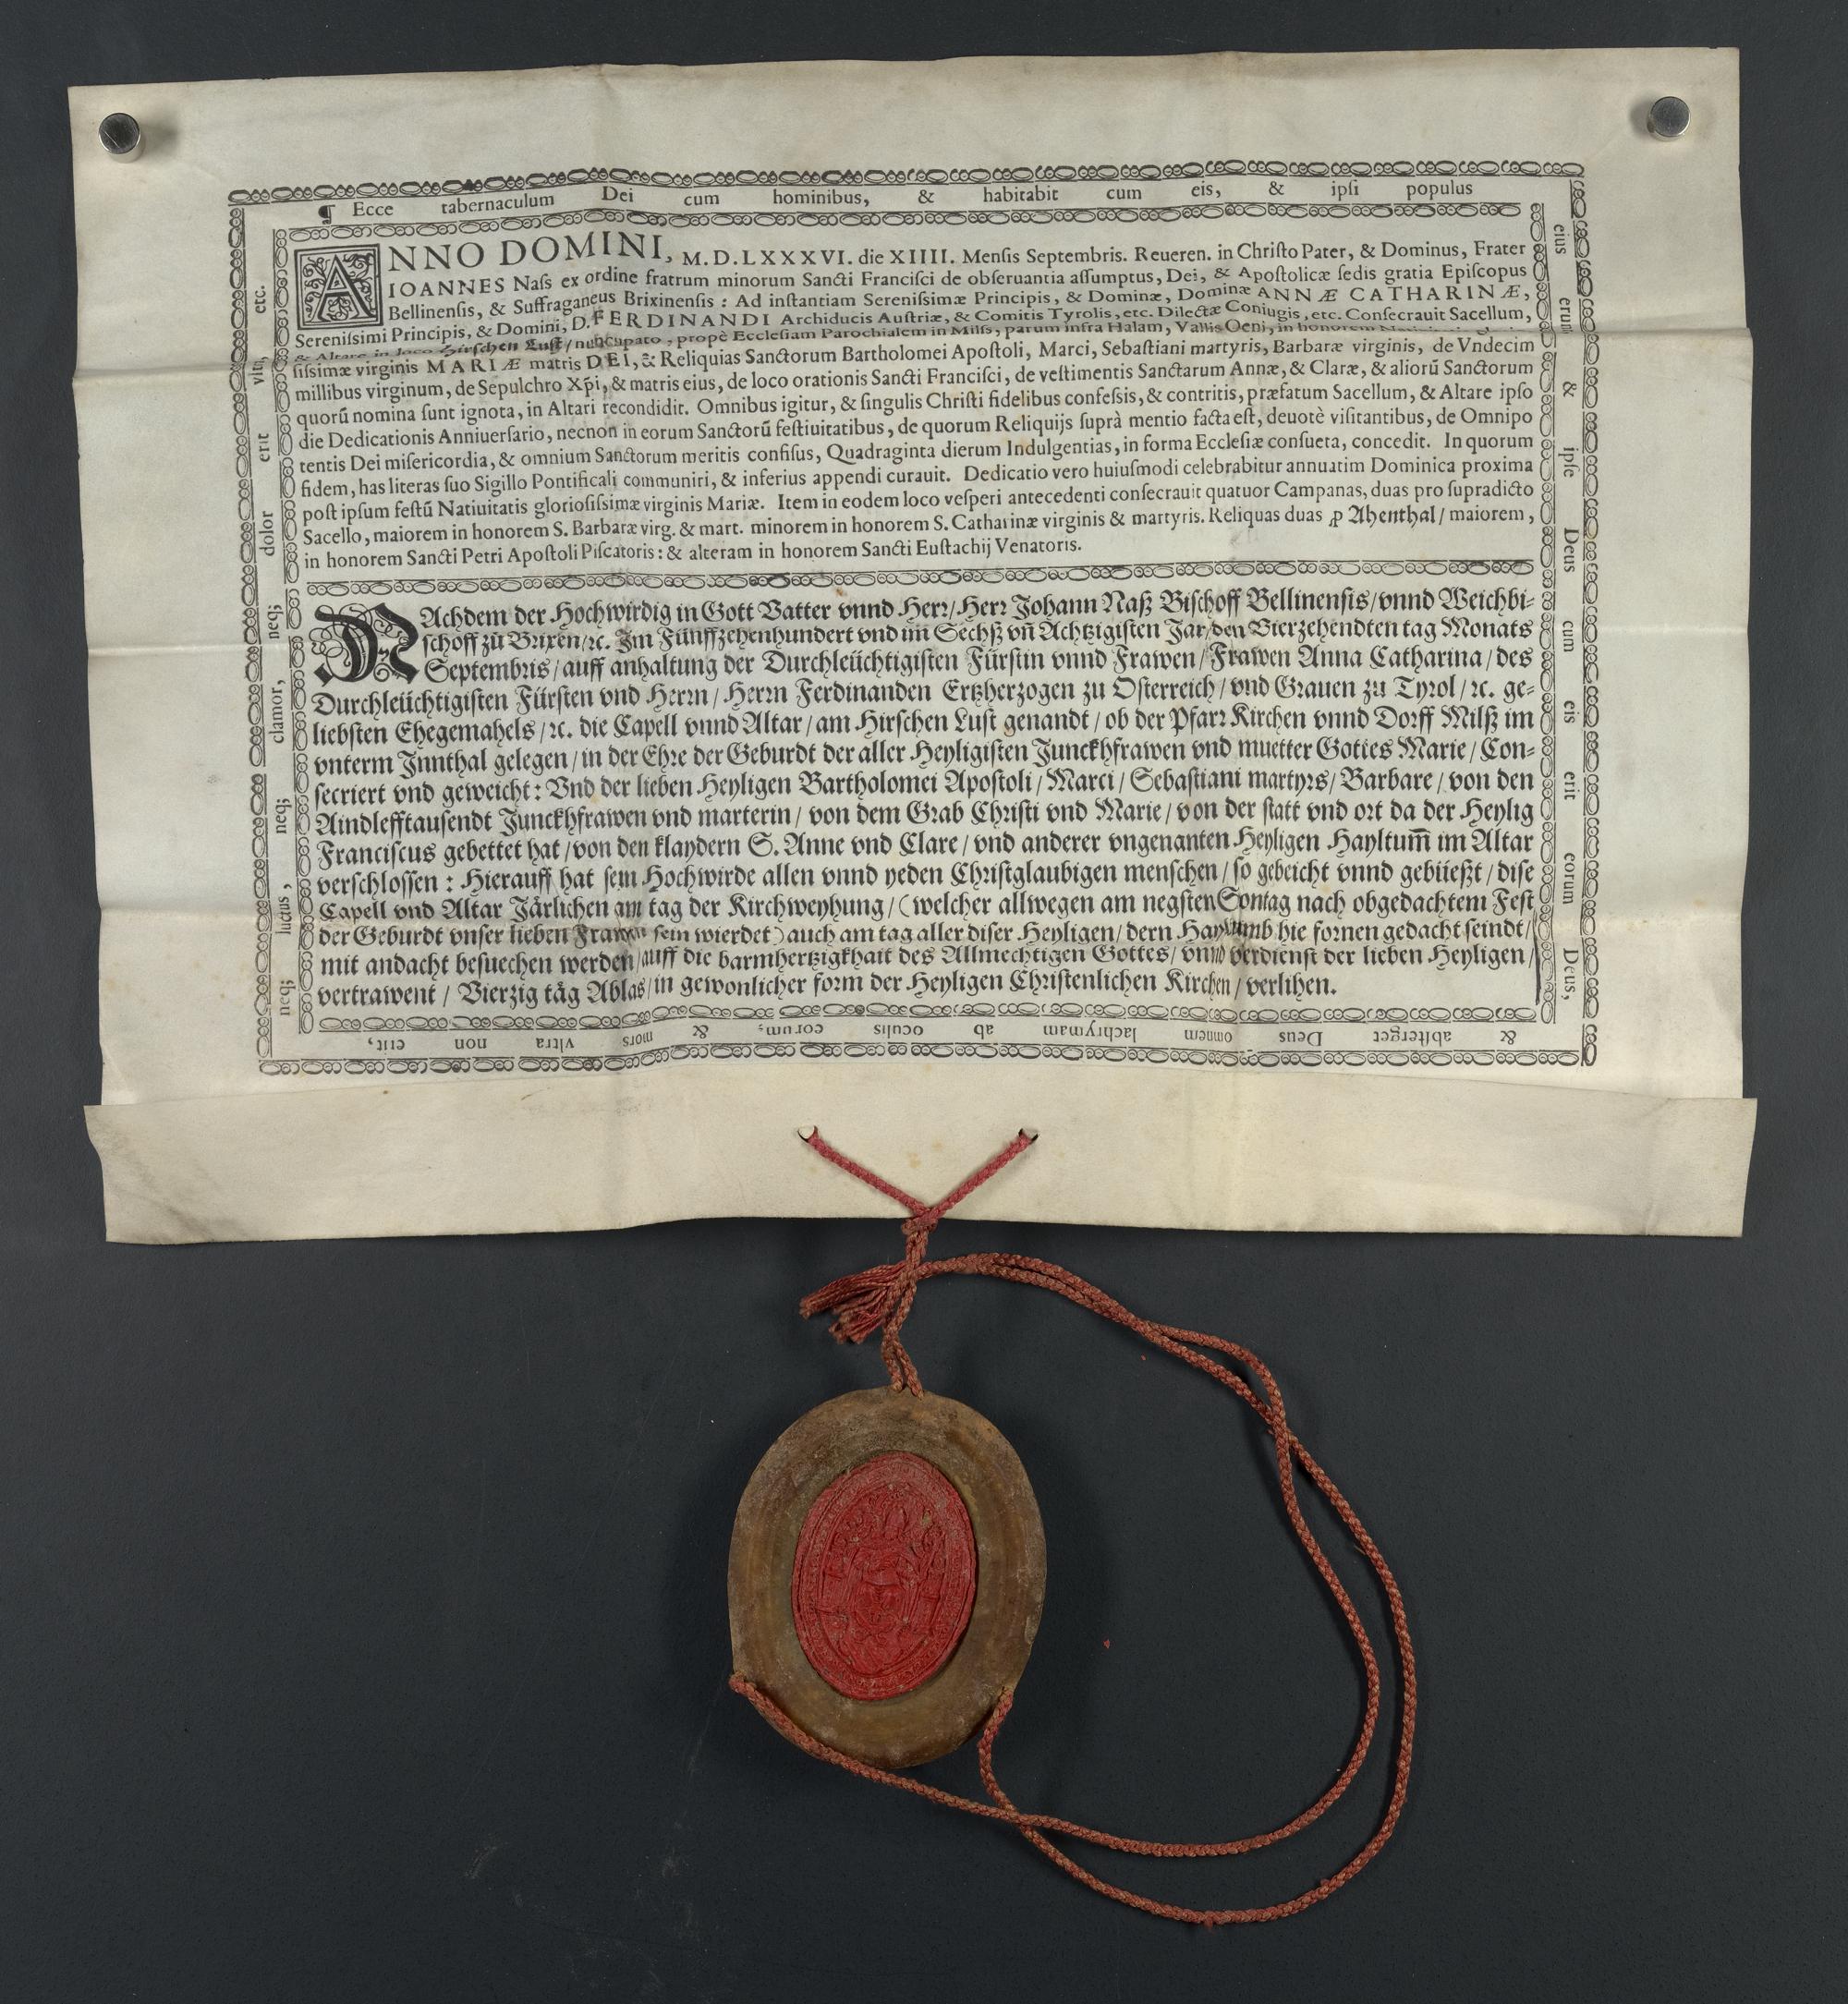 ¶ Ecce tabernaculum Dei cum hominibus, & habitabit cum eis, & ipſi populus
eius erunt & ipſe Deus cum eis erit eorum Deus,
& abſterget Deus omnem lachrymam ab oculis eorum; & mors vltra non erit,
neq; luctus, neq; clamor, neq; dolor erit vltra, etc.
ANNO DOMINI, M. D. LXXXVI. die XIIII. Menſis Septembris. Reueren. in Chriſto Pater, & Dominus, Frater
IOANNES Naſs ex ordine fratrum minorum Sancti Franciſci de obſeruantia aſſumptus, Dei, & Apoſtolicæ ſedis gratia Epiſcopus
Bellinenſis, & Suffraganeus Brixinenſis : Ad inſtantiam Sereniſsimæ Principis, & Dominæ, Dominæ ANNÆ CATHARINÆ,
Sereniſsimi Principis, & Domini, D. FERDINANDI Archiducis Auſtriæ, & Comitis Tyrolis, etc. Dilectæ Coniugis, etc. Conſecrauit Sacellum,
& Altare in loco Hirſchen Luſt / nuncupato, propè Eccleſiam Parochialem in Milſs, parum infra Halam, Vallis Oeni, in honorem
ſiſsimæ virginis MARIÆ matris DEI, & Reliquias Sanctorum Bartholomei Apoſtoli, Marci, Sebaſtiani martyris, Barbaræ virginis, de Vndecim
millibus virginum, de Sepulchro Xp̃i, & matris eius, de loco orationis Sancti Franciſci, de veſtimentis Sanctarum Annæ, & Claræ, & aliorũ Sanctorum
quorũ nomina ſunt ignota, in Altari recondidit. Omnibus igitur, & ſingulis Chriſti fidelibus confeſsis, & contritis, præfatum Sacellum, & Altare ipſo
die Dedicationis Anniuerſario, necnon in eorum Sanctorũ feſtiuitatibus, de quorum Reliquijs ſuprà mentio facta eſt, deuotè viſitantibus, de Omnipo
tentis Dei miſericordia, & omnium Sanctorum meritis confiſus, Quadraginta dierum Indulgentias, in forma Eccleſiæ conſueta, concedit. In quorum
fidem, has literas ſuo Sigillo Pontificali communiri, & inferius appendi curauit. Dedicatio vero huiuſmodi celebrabitur annuatim Dominica proxima
poſt ipſum feſtũ Natiuitatis glorioſiſsimæ virginis Mariæ. Item in eodem loco veſperi antecedenti conſecrauit quatuor Campanas, duas pro ſupradicto
Sacello, maiorem in honorem S. Barbaræ virg. & mart. minorem in honorem S. Catharinæ virginis & martyris. Reliquas duas ꝓ Ahenthal / maiorem,
in honorem Sancti Petri Apoſtoli Piſcatoris : & alteram in honorem Sancti Euſtachij Venatoris.
NAchdem der Hochwirdig in Gott Vatter vnnd Herr / Herr Johann Naß Biſchoff Bellinenſis / vnnd Weichbi-
ſchoff zů Brixen / ꝛc. Im Fünffzehenhundert vnd im Sechß vñ Achtzigiſten Jar / den Vierzehendten tag Monats
Septembris / auff anhaltung der Durchleüchtigiſten Fürſtin vnnd Frawen / Frawen Anna Catharina / des
Durchleüchtigiſten Fürſten vnd Herrn / Herrn Ferdinanden Ertzherzogen zu Oſterreich / vnd Grauen zu Tyrol / ꝛc. ge-
liebſten Ehegemahels / ꝛc. die Capell vnnd Altar / am Hirſchen Luſt genandt / ob der Pfarr Kirchen vnnd Dorff Milß im
vnterm Jnnthal gelegen / in der Ehre der Geburdt der aller Heyligiſten Junckhfrawen vnd muetter Gottes Marie / Con-
ſecriert vnd geweicht : Vnd der lieben Heyligen Bartholomei Apoſtoli / Marci / Sebaſtiani martyrs / Barbare / von den
Aindlefftauſendt Junckhfrawen vnd marterin / von dem Grab Chriſti vnd Marie / von der ſtatt vnd ort da der Heylig
Franciſcus gebettet hat / von den klaydern S. Anne vnd Clare / vnd anderer vngenanten Heyligen Hayltum̃ im Altar
verſchloſſen : Hierauff hat ſein Hochwirde allen vnnd yeden Chriſtglaubigen menſchen / ſo gebeicht vnnd gebüeßt / diſe
Capell vnd Altar Järlichen am tag der Kirchweyhung / (welcher allwegen am negſten Sontag nach obgedachtem Feſt
der Geburdt vnſer lieben Frawen ſein wierdet) auch am tag aller diſer Heyligen / dern Hayltumb hie fornen gedacht ſeindt /
mit andacht beſuechen werden / auff die barmhertzigkhait des Allmechtigen Gottes / vnnd verdienſt der lieben Heyligen /
vertrawent / Vierzig täg Ablas / in gewonlicher form der Heyligen Chriſtenlichen Kirchen / verlihen.